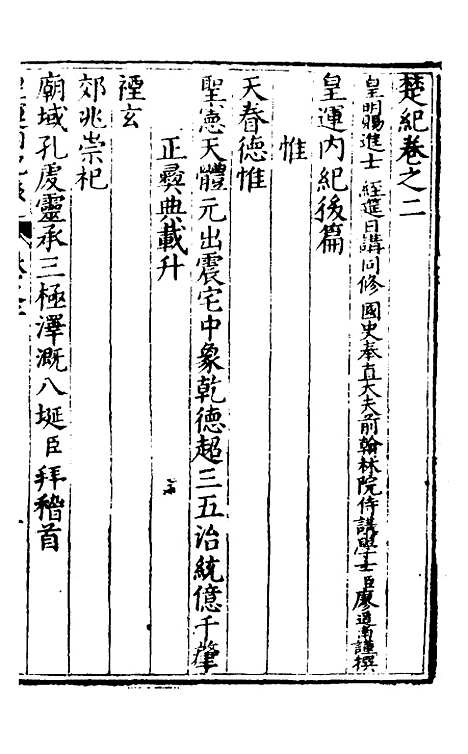 楚紀卷之二
皇明賜進士 經筵日講同修 國史奉直大夫前翰林院侍講學士臣廖道南謹撰
皇運內紀後篇
惟
天眷德惟
聖憲天體元出震宅中象乾德超三五治統億千肇
正彞典載升
禋玄
郊兆崇祀
廟域孔虔靈承三極澤溉八埏臣拜稽首